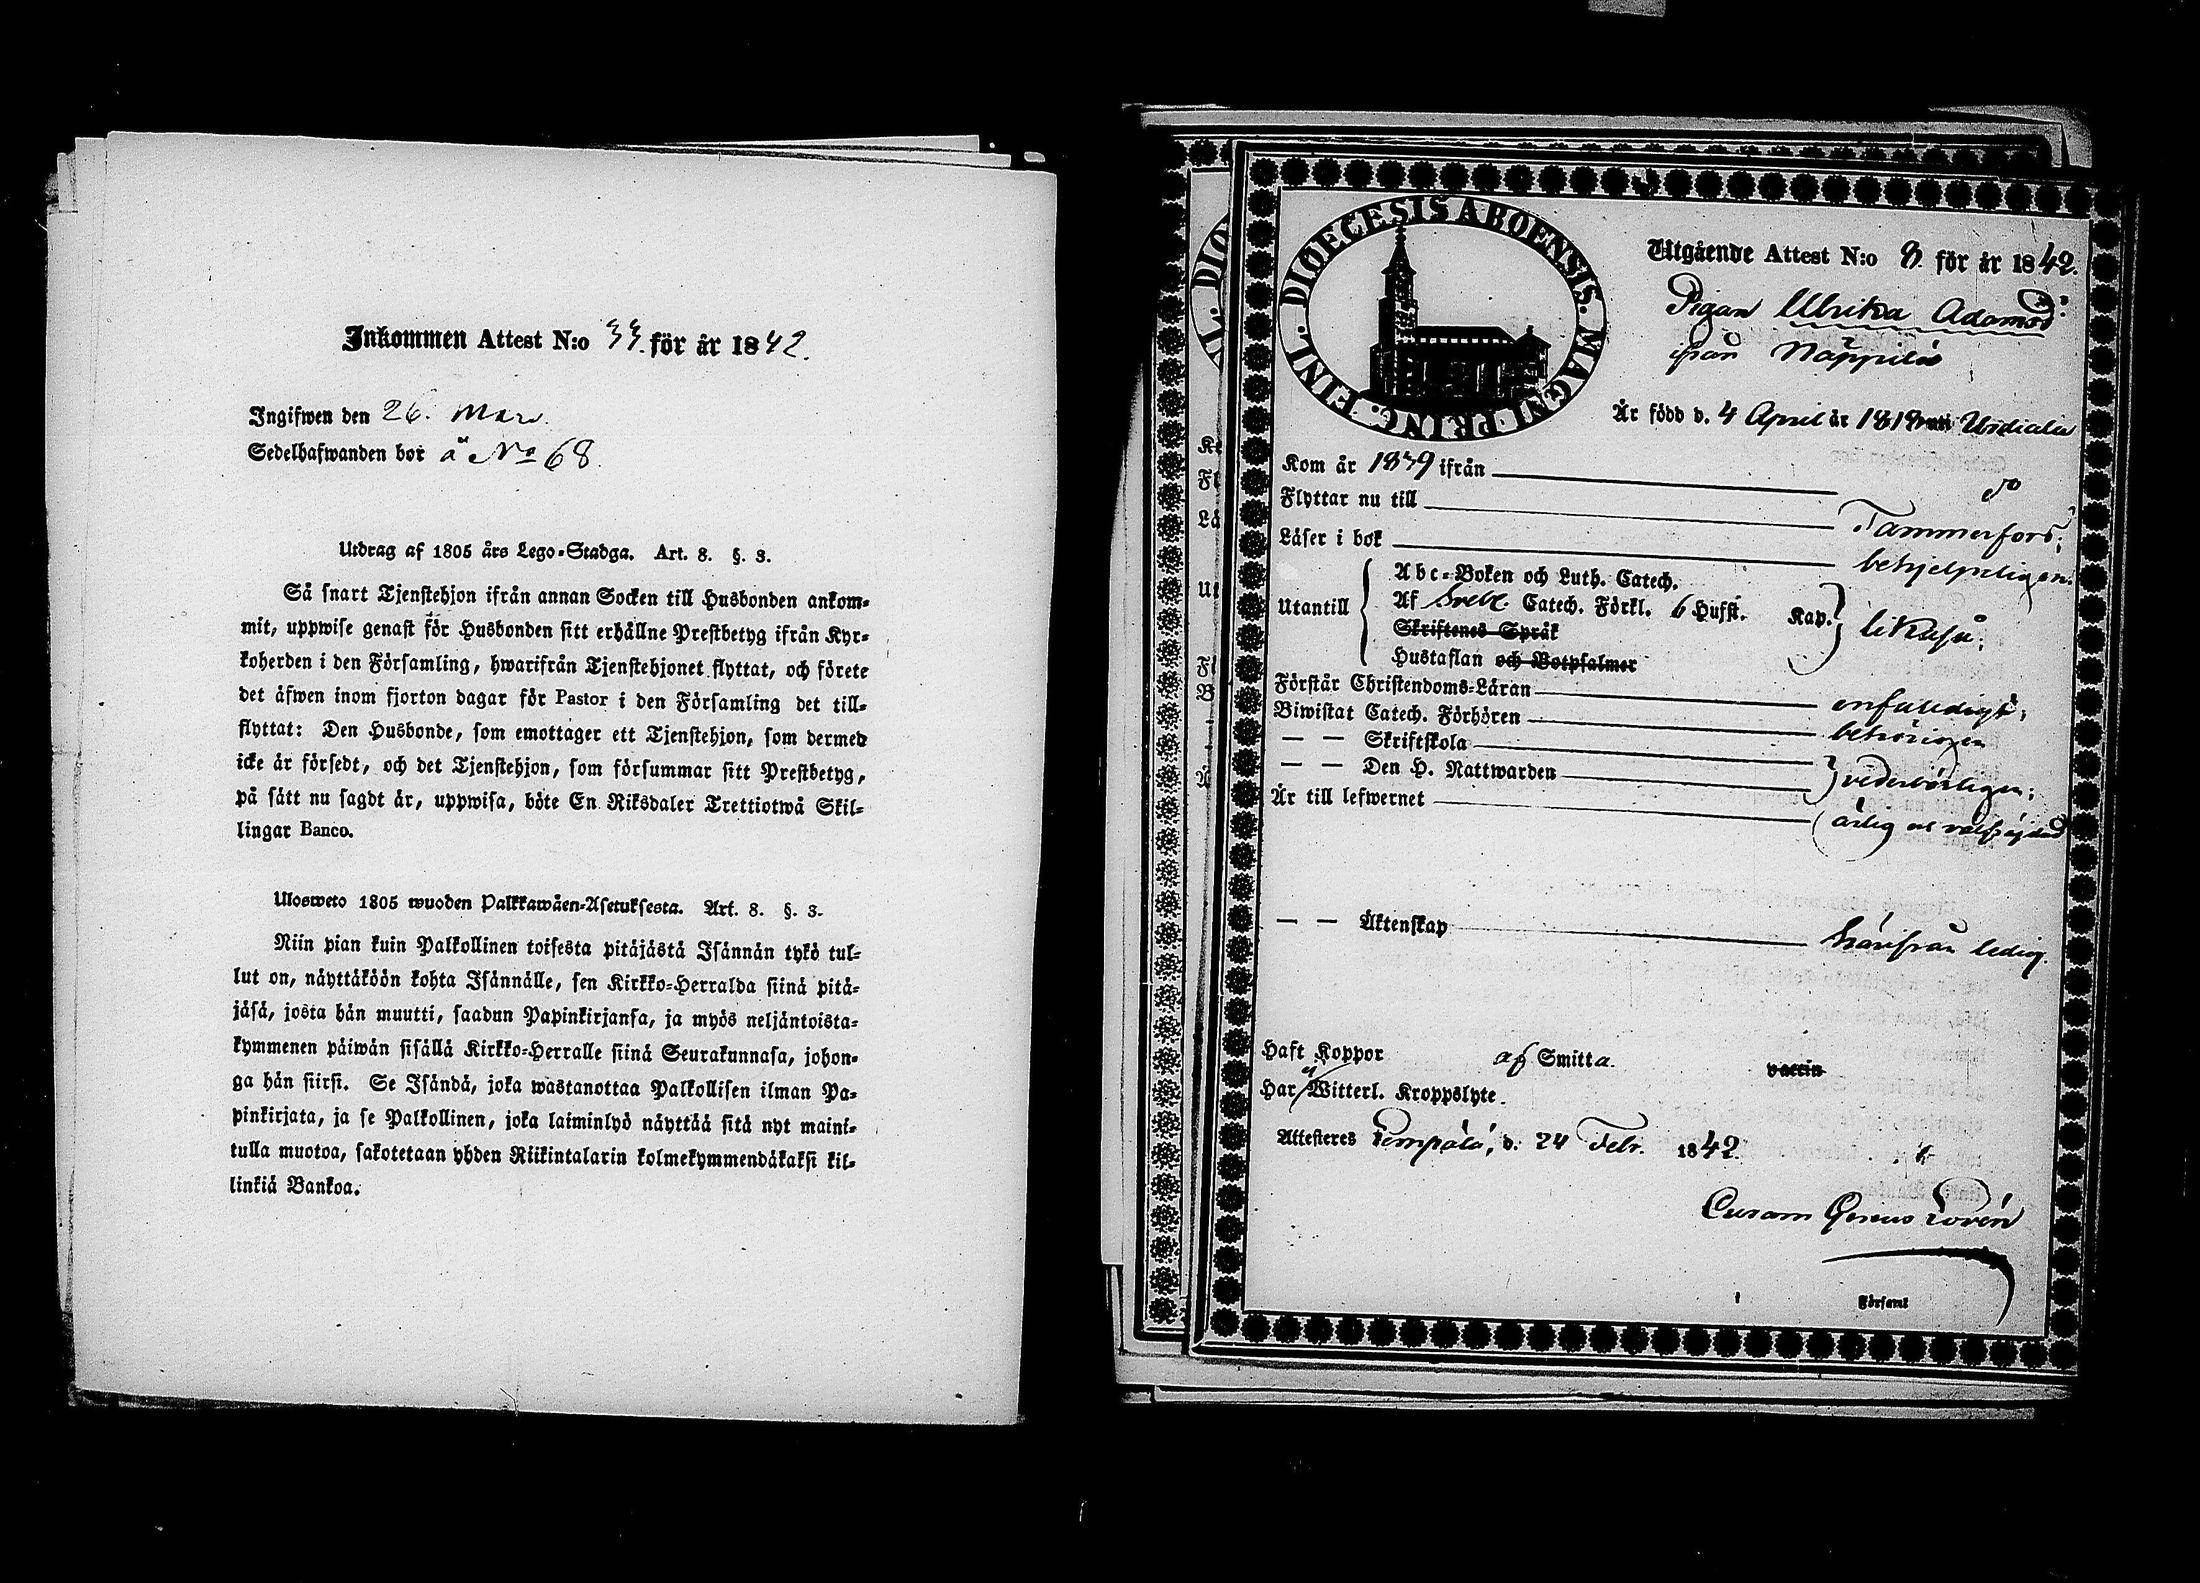 Inkommen Attest N:o 33. för år 1842.
Ingifwen den 26. Mars.
Sedelhafwanden bor å No 68.
Utdrag af 1805 års Lego-Stadga. Art. 8. §. 3.
Så snart Tjenstehjon ifrån annan Socken till Husbonden ankom-
mit, uppwise genast för Husbonden sitt erhållne Prestbetyg ifrån Kyr-
koherden i den Församling, hwarifrån Tjenstehjonet flyttat, och förete
det äfwen inom fjorton dagar för Pastor i den Församling det till-
flyttat: Den Husbonde, som emottager ett Tjenstehjon, som dermed
icke är försedt, och det Tjenstehjon, som försummar sitt Prestbetyg,
på sätt nu sagdt är, uppwisa, böte En Riksdaler Trettiotwå Skil-
lingar Banco.
Ulosweto 1805 wuoden Palkkawäen-Asetuksesta. Art. 8. §. 3.
Niin pian kuin Palkollinen toisesta pitäjästä Isännän tykö tul-
lut on, näyttäköön kohta Isännälle, sen Kirkko-Herralda siinä pitä-
jäsä, josta hän muutti, saadun Papinkirjansa, ja myös neljäntoista-
kymmenen päiwän sisällä Kirkko-Herralle siinä Seurakunnasa, johon-
ga hän siirsi. Se Isändä, joka wastanottaa Palkollisen ilman Pa-
pinkirjata, ja se Palkollinen, joka laiminlyö näyttää sitä nyt maini-
tulla muotoa, sakotetaan yhden Riikintalarin kolmekymmendäkaksi kil-
linkiä Bankoa.
DIOECESIS ABOENSIS. MAGNI PRINC. FINL.
Utgående Attest N:o 8. för år 1842.
Pigan Ulrika Adamsd:
från Näppilä
Är född d. 4 April år 1818 uti Urdiala
Kom år 1839 ifrån do
Flyttar nu till Tammerfors;
Läser i bok behjelpeligen;
Utantill
Abc-Boken och Luth. Catech.
Af Svebel. Catech. Förkl. 6 Hufst. Kap.
Skriftenes Språk
Hustaflan och Botpsalmer
likaså;
Förstår Christendoms-Läran enfaldigt;
Biwistat Catech. Förhören behörigen
— — Skriftskola
— — Den H. Nattwarden
vederbörligen;
Är till lefwernet ärlig och välfräjdad
— — Äktenskap härifrån ledig.
Haft Koppor af Smitta. vaccin
Har ej Witterl. Kroppslyte.
Attesteras Lempälä, d. 24 Febr. 1842.
Curam Gerens Lovén
Församl